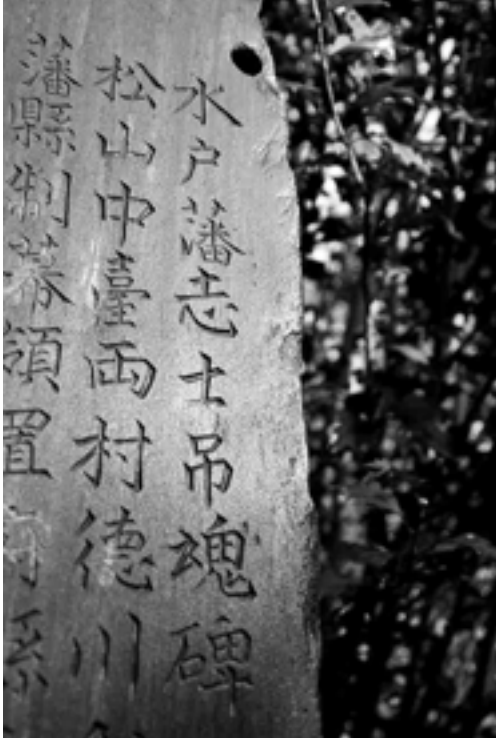 水戸藩志士吊魂碑
松山中臺両村徳川
藩縣制幕領置